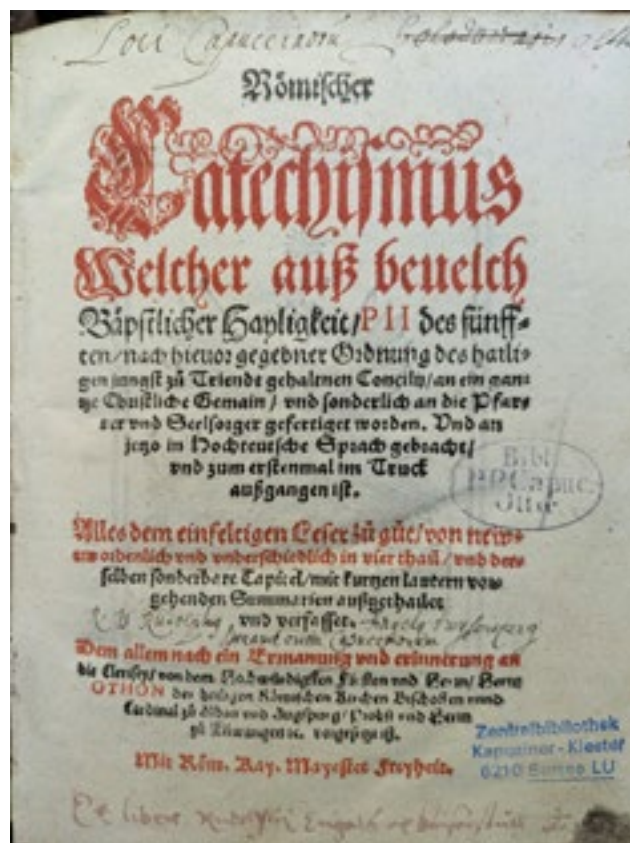 Loci Capucinorū
Römischer
Catechismus
Welcher auß beuelch
Bäpstlicher Hayligkeit/ PII des fünff-
ten/ nach hieuor gegebner Ordnung des haili-
gen jungst zů Triendt gehaltnen Concilij/ an ein gan-
tze Christliche Gemain/ vnd sonderlich an die Pfar-
rer vnd Seelsorger gefertiget worden. Vnd an
jetzo in Hochteutsche Sprach gebracht/
vnd zum erstenmal im Truck
außgangen ist.
Bibl.
PP. Capuc.
Alles dem einfeltigen Leser zů gůt/ von new-
em ordenlich vnd vnderschiedlich in vier thail/ vnd der-
selben sonderbare Capitel/ mit kurtzen lautern vor-
gehenden Summarien außgethailet
vnd verfasset.
Dem allem nach ein Ermanung vnd erinnerung an
die Clerisey/ von dem Hochwürdigsten Fürsten vnd Herrn/ Herrn
OTHON der heiligen Römischen Kirchen Bischoffen vnnd
Cardinal zů Alban vnd Augspurg/ Probst vnd Herrn
zů Elwangen ec.
Mit Röm. Kay. Mayestet Freyheit.
Zentralbibliothek
Kapuziner-Kloster
6210 Sursee LU
Ex libris